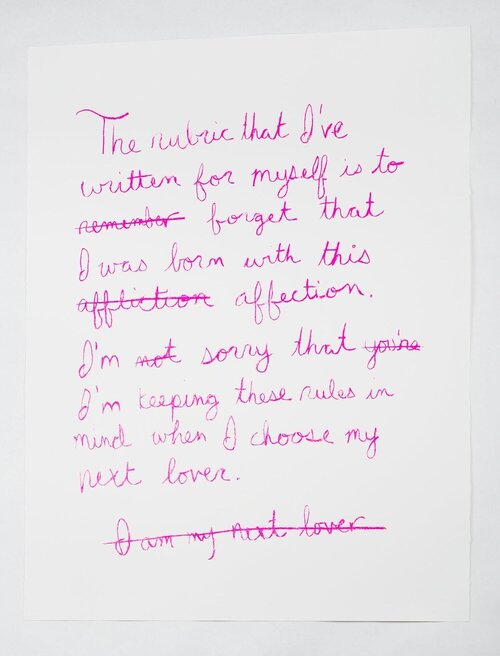 The rubric that I've
written for myself is to
remember forget that
I was born with this
affliction affection.
I'm not sorry that you're
I'm keeping these rules in
mind when I choose my
next lover.
I am my next lover